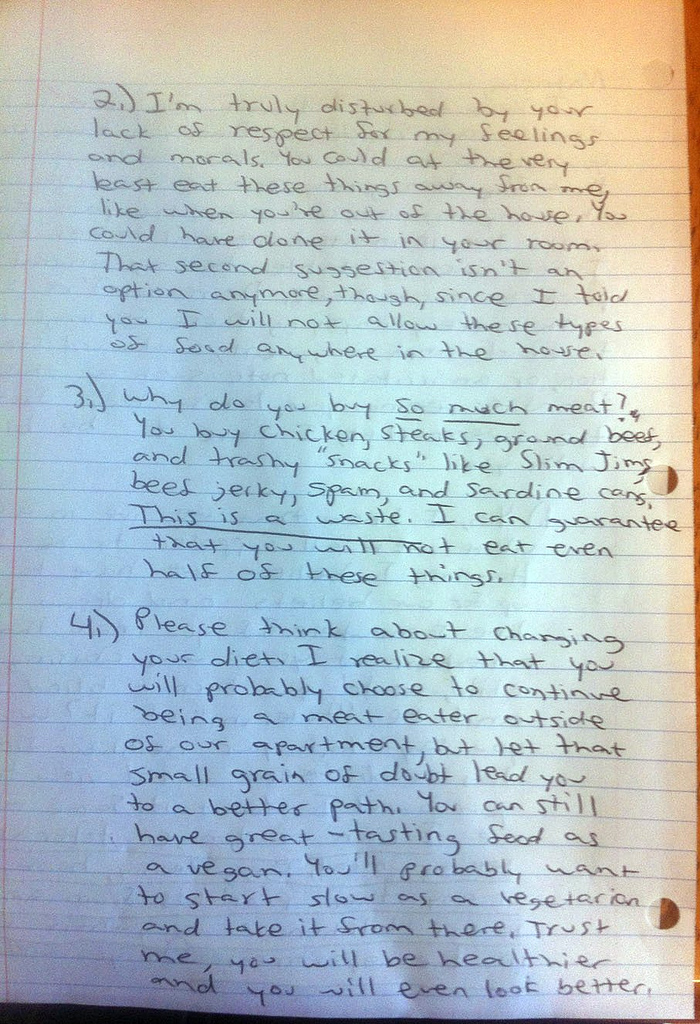 2.) I'm truly disturbed by your
lack of respect for my feelings
and morals. You could at the very
least eat these things away from me,
like when you're out of the house. You
could have done it in your room.
That second suggestion isn't an
option anymore, though, since I told
you I will not allow these types
of food anywhere in the house.
3.) Why do you buy so much meat?
You buy chicken, steaks, ground beef,
and trashy "snacks" like Slim Jims,
beef jerky, spam, and sardine cans.
This is a waste. I can guarantee
that you will not eat even
half of these things.
4.) Please think about changing
your diet. I realize that you
will probably choose to continue
being a meat eater outside
of our apartment, but let that
small grain of doubt lead you
to a better path. You can still
have great-tasting food as
a vegan. You'll probably want
to start slow as a vegetarian
and take it from there. Trust
me, you will be healthier
and you will even look better.